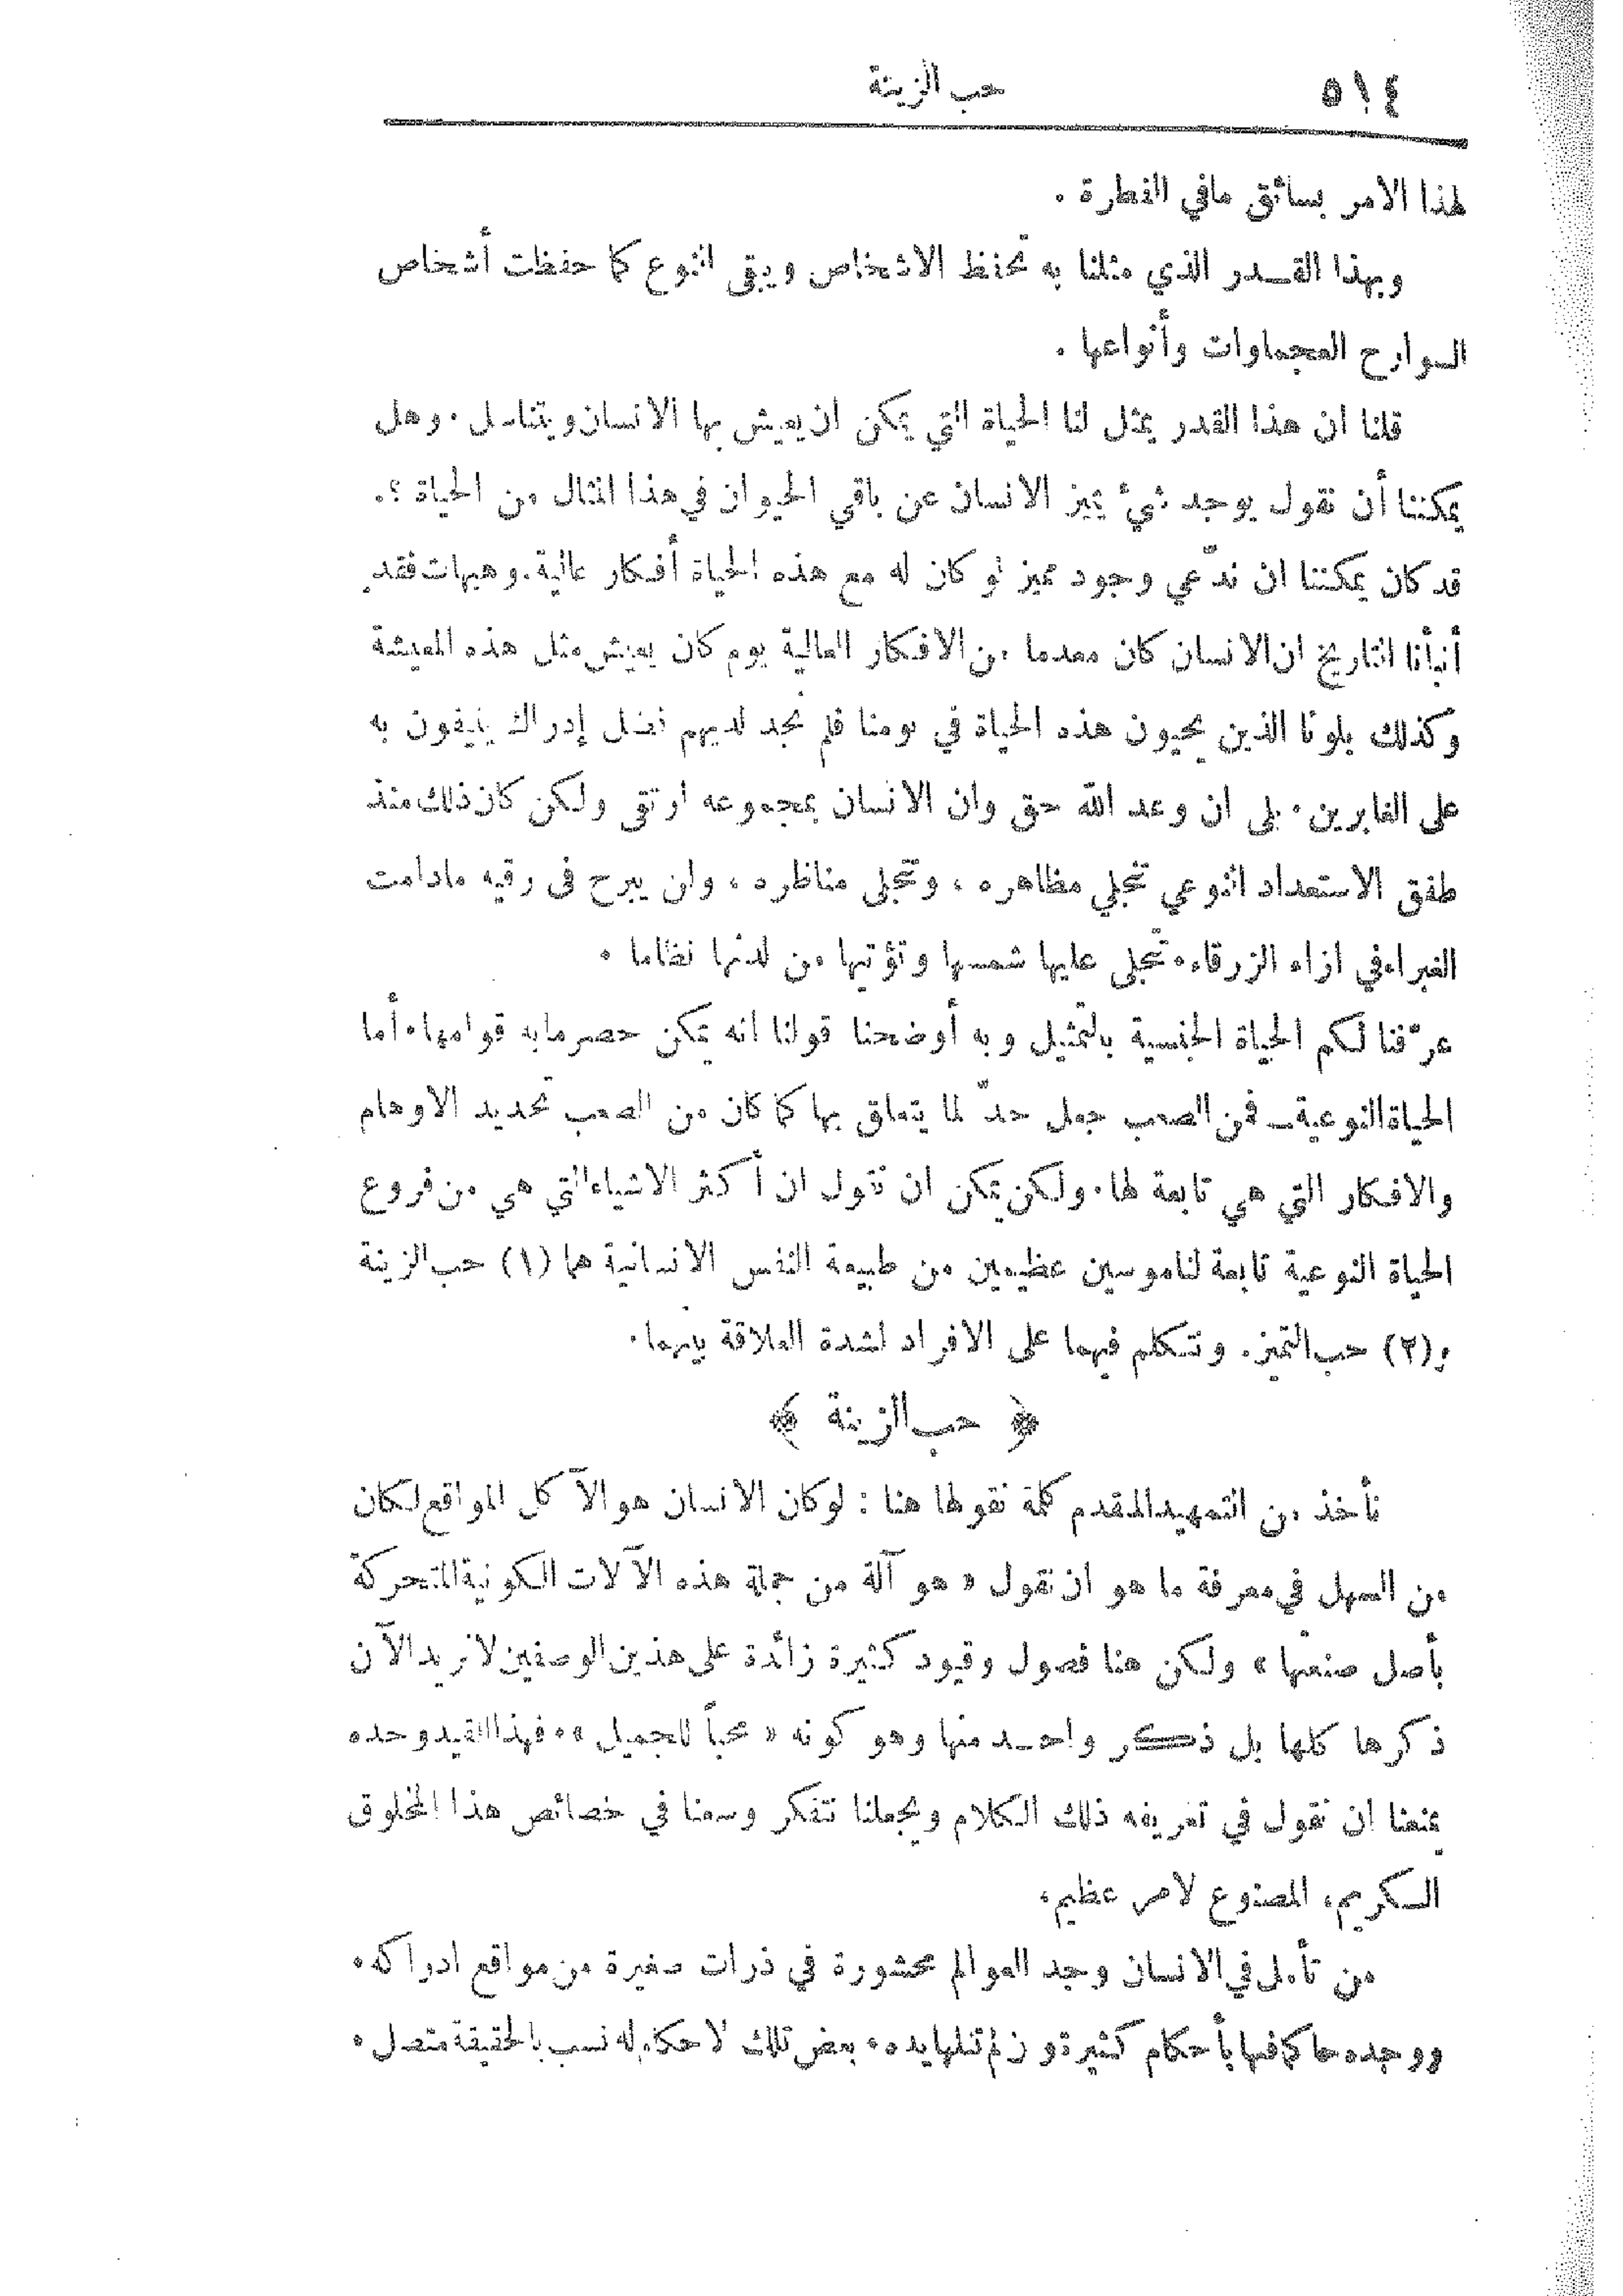 ٥١٤
حب الزينة
لهذا الامر بسائق مافي الفطرة .
وبهذا القـدر الذي مثلنا به تحفظ الاشخاص ويبقى النوع كما حفظت أشخاص
السوارح العجماوات وأنواعها .
قلنا ان هذا القدر يمثل لنا الحياة التي يمكن ان يعيش بها الانسان ويتناسل . وهل
يمكننا أن نقول يوجد شيء يميز الانسان عن باقي الحيوان في هذا المثال من الحياة ؟ .
قد كان يمكننا ان ندّعي وجود مميز لو كان له مع هذه الحياة أفكار عالية . وهيهات فقد
أنبأنا التاريخ ان الانسان كان معدما من الافكار العالية يوم كان يعيش مثل هذه المعيشة
وكذلك بلونا الذين يحيون هذه الحياة في يومنا فلم نجد لديهم فضل إدراك ينيفون به
على الغابرين . بلى ان وعد الله حق وان الانسان بمجموعه ارتقى ولكن كان ذلك منذ
طفق الاستعداد النوعي تنجلي مظاهره ، وتتجلى مناظره ، ولن يبرح في رقيه مادامت
الغبراء في ازاء الزرقاء . تتجلى عليها شمسها وتؤتيها من لدنها نظاما .
عرّفنا لكم الحياة الجنسية بالتمثيل وبه أوضحنا قولنا انه يمكن حصر مابه قوامها . أما
الحياة النوعية ـ فمن الصعب جعل حدّ لما يتعلق بها كما كان من الصعب تحديد الاوهام
والافكار التي هي تابعة لها . ولكن يمكن ان نقول ان أكثر الاشياء التي هي من فروع
الحياة النوعية تابعة لناموسين عظيمين من طبيعة النفس الانسانية هما (١) حب الزينة
و(٢) حب التميز . ونتكلم فيهما على الافراد لشدة العلاقة بينهما .
﴿ حب الزينة ﴾
نأخذ من التمهيد المقدم كلمة نقولها هنا : لو كان الانسان هو الآكل المواقع لكان
من السهل في معرفة ما هو ان نقول « هو آلة من جملة هذه الآلات الكونية المتحركة
بأصل صنعتها » ولكن هنا فصول وقيود كثيرة زائدة على هذين الوصفين لا نريد الآن
ذكرها كلها بل ذكر واحـد منها وهو كونه « محباً للجميل » . فهذا القيد وحده
يمنعنا ان نقول في تعريفه ذلك الكلام ويجعلنا نتفكر وسعنا في خصائص هذا المخلوق
الكريم ، المصنوع لامر عظيم ،
من تأمل في الانسان وجد العوالم محشورة في ذرات صغيرة من مواقع ادراكه .
ووجده حاكما فيها بأحكام كثيرة وان لم تنلها يده . بعض تلك الاحكام له نسب بالحقيقة متصل .